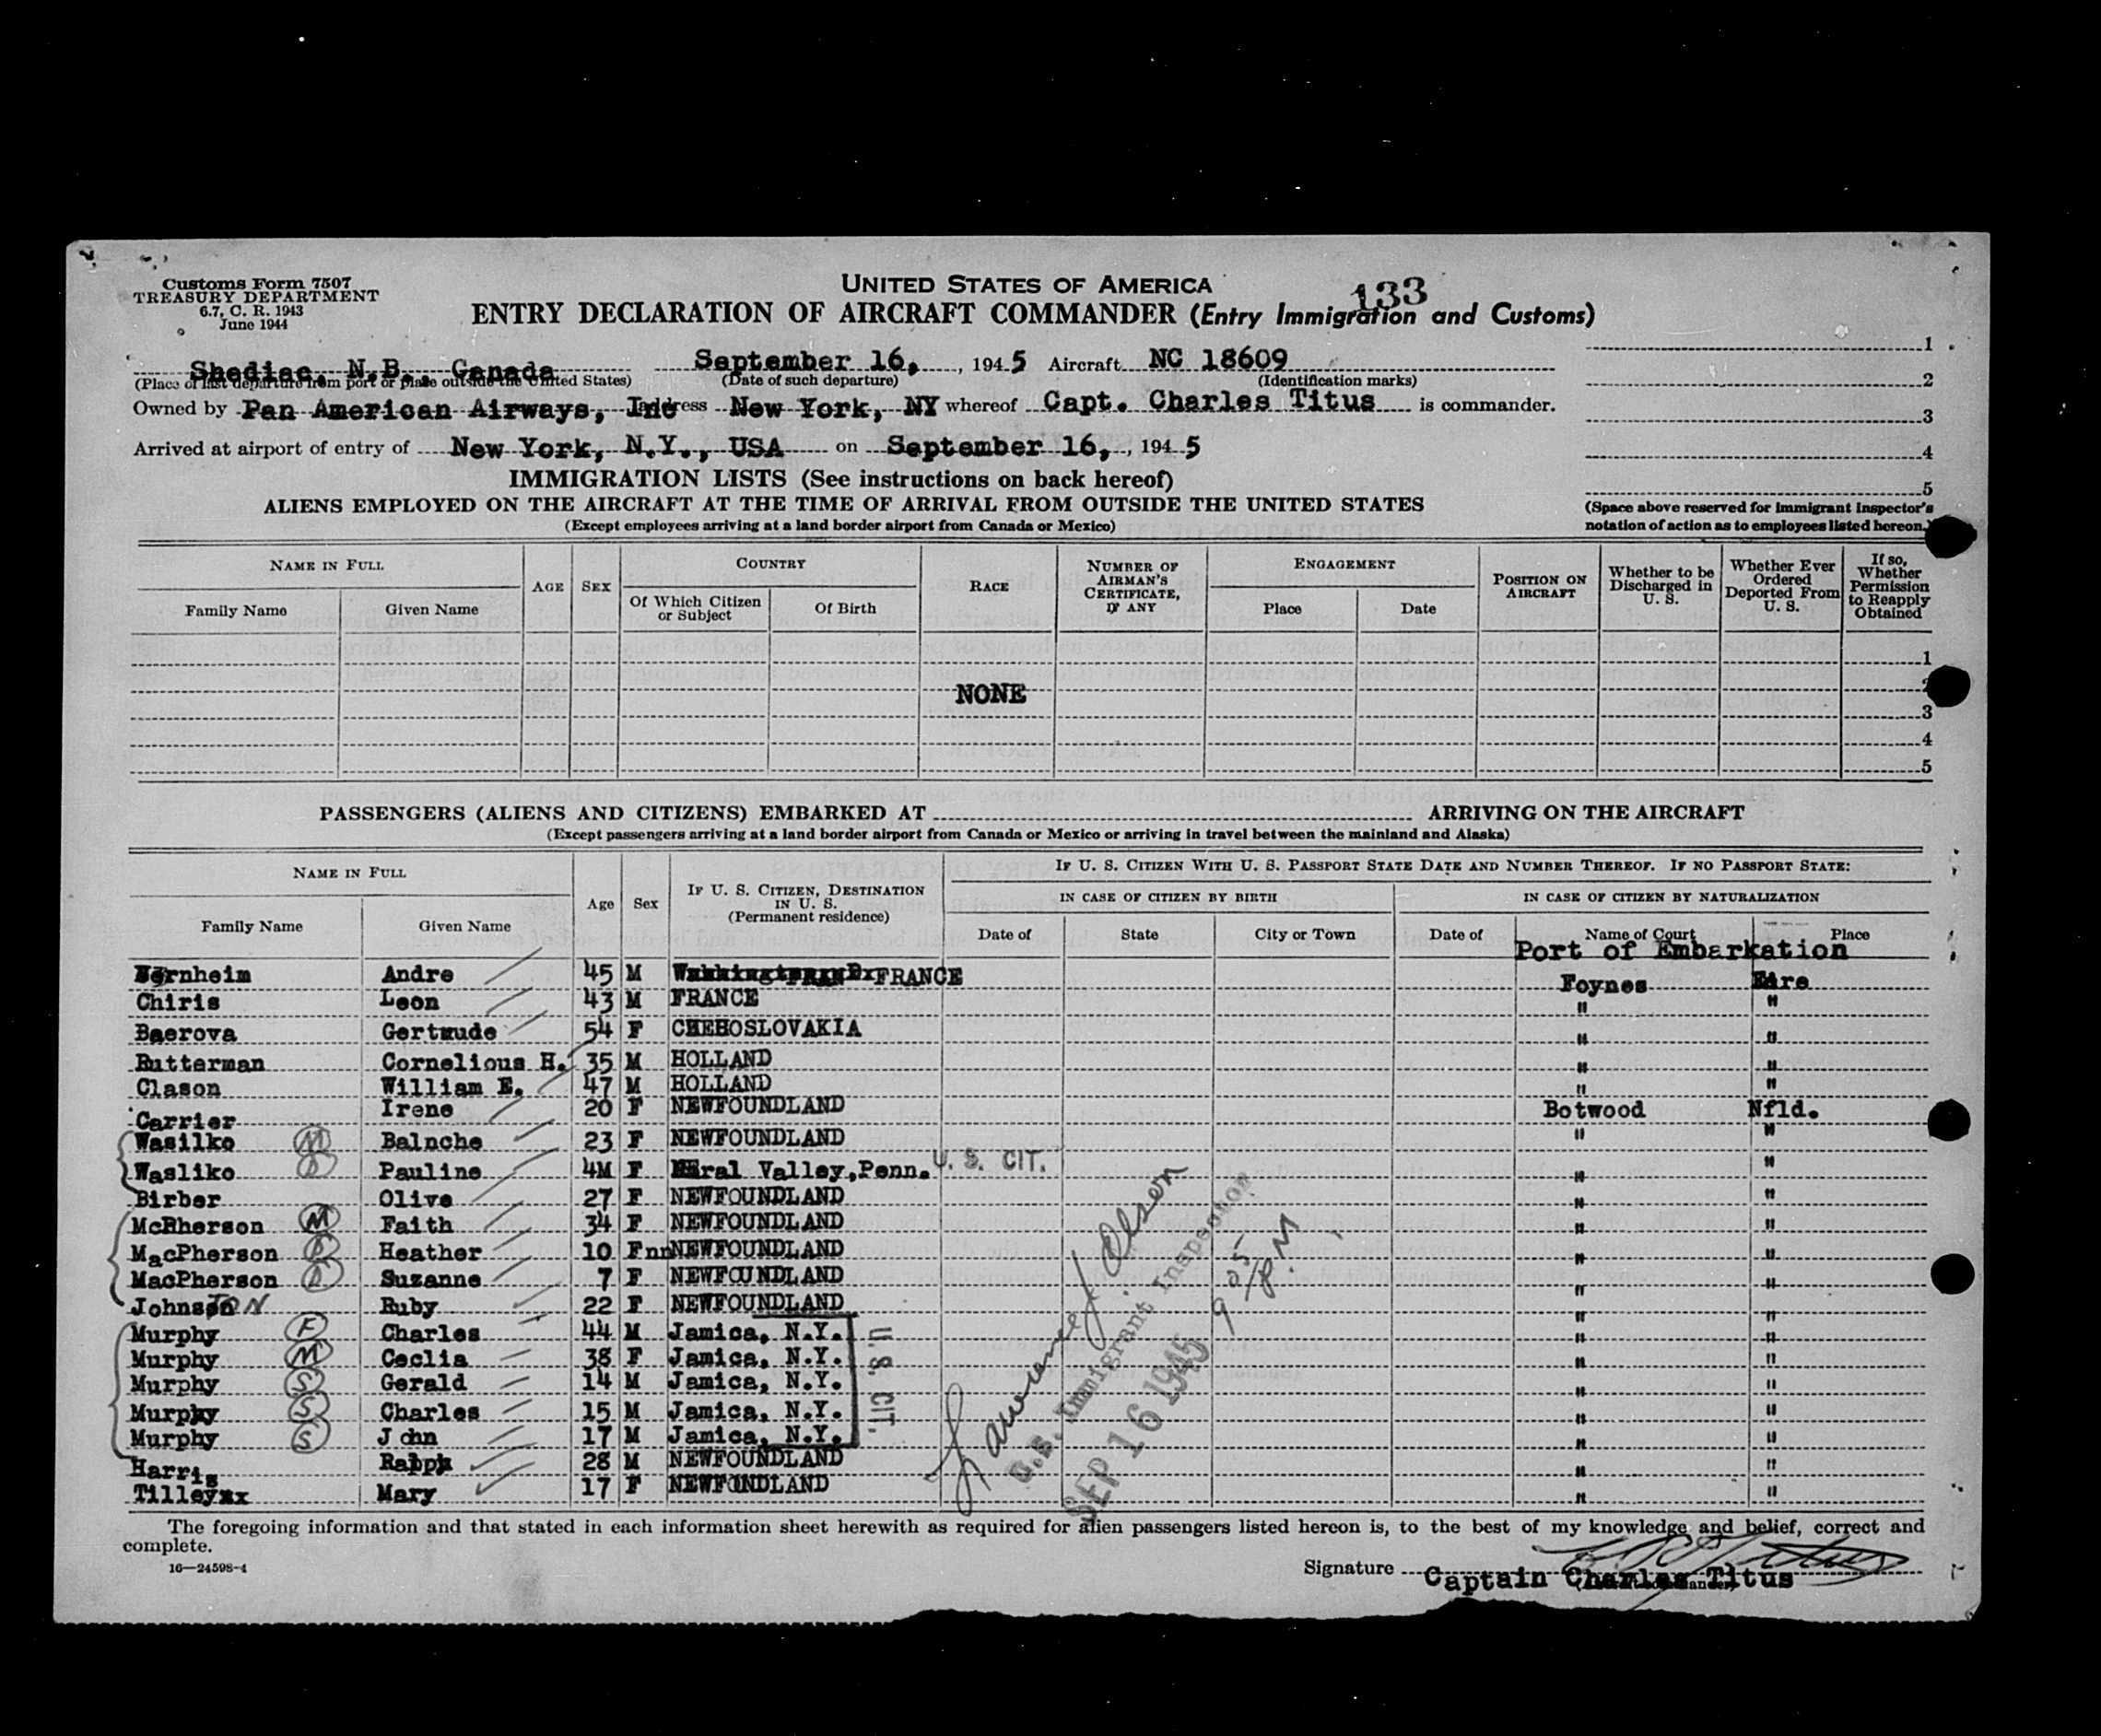 Customs Form 7507
TREASURY DEPARTMENT
6.7, C. R. 1943
June 1944
UNITED STATES OF AMERICA
133
ENTRY DECLARATION OF AIRCRAFT COMMANDER (Entry Immigration and Customs)
Shediac, N.B., Canada September 16, , 1945 Aircraft NC 18609
(Place of last departure from port or place outside the United States) (Date of such departure) (Identification marks)
Owned by Pan American Airways, Inc Address New York, NY whereof Capt. Charles Titus is commander.
Arrived at airport of entry of New York, N.Y., USA on September 16, , 1945
1
2
3
4
5
(Space above reserved for Immigrant Inspector's
notation of action as to employees listed hereon.)
IMMIGRATION LISTS (See instructions on back hereof)
ALIENS EMPLOYED ON THE AIRCRAFT AT THE TIME OF ARRIVAL FROM OUTSIDE THE UNITED STATES
(Except employees arriving at a land border airport from Canada or Mexico)
NAME IN FULL
Family Name Given Name
AGE SEX
COUNTRY
Of Which Citizen or Subject Of Birth
RACE
NUMBER OF AIRMAN'S CERTIFICATE, IF ANY
ENGAGEMENT
Place Date
POSITION ON AIRCRAFT
Whether to be Discharged in U. S.
Whether Ever Ordered Deported From U. S.
If so, Whether Permission to Reapply Obtained
1
NONE 2
3
4
5
PASSENGERS (ALIENS AND CITIZENS) EMBARKED AT ARRIVING ON THE AIRCRAFT
(Except passengers arriving at a land border airport from Canada or Mexico or arriving in travel between the mainland and Alaska)
NAME IN FULL
Family Name Given Name
Age Sex
IF U. S. CITIZEN, DESTINATION IN U. S. (Permanent residence)
IF U. S. CITIZEN WITH U. S. PASSPORT STATE DATE AND NUMBER THEREOF. IF NO PASSPORT STATE:
IN CASE OF CITIZEN BY BIRTH IN CASE OF CITIZEN BY NATURALIZATION
Date of State City or Town Date of Name of Court Place
Port of Embarkation
Bernheim Andre 45 M FRANCE Foynes Eire
Chiris Leon 43 M FRANCE " "
Baerova Gertrude 54 F CHEHOSLOVAKIA " "
Rutterman Cornelious H. 35 M HOLLAND " "
Clason William E. 47 M HOLLAND " "
Carrier Irene 20 F NEWFOUNDLAND Botwood Nfld.
Wasilko M Balnche 23 F NEWFOUNDLAND " "
Wasliko D Pauline 4M F Maral Valley,Penn. U. S. CIT. " "
Birber Olive 27 F NEWFOUNDLAND " "
McPherson M Faith 34 F NEWFOUNDLAND " "
MacPherson D Heather 10 F nnNEWFOUNDLAND " "
MacPherson D Suzanne 7 F NEWFOUNDLAND " "
Johnson TON Ruby 22 F NEWFOUNDLAND " "
Murphy F Charles 44 M Jamica, N.Y. " "
Murphy M Ceclia 38 F Jamica, N.Y. " "
Murphy S Gerald 14 M Jamica, N.Y. " "
Murphy S Charles 15 M Jamica, N.Y. " "
Murphy S John 17 M Jamica, N.Y. " "
U. S. CIT.
Harris Ralph 28 M NEWFOUNDLAND " "
Tilleyxx Mary 17 F NEWFONDLAND " "
Lawrence J Olsen
U.S. Immigrant Inspector
SEP 16 1945
9 05 P.M
The foregoing information and that stated in each information sheet herewith as required for alien passengers listed hereon is, to the best of my knowledge and belief, correct and
complete.
16—24598-4
Signature Captain Charles Titus